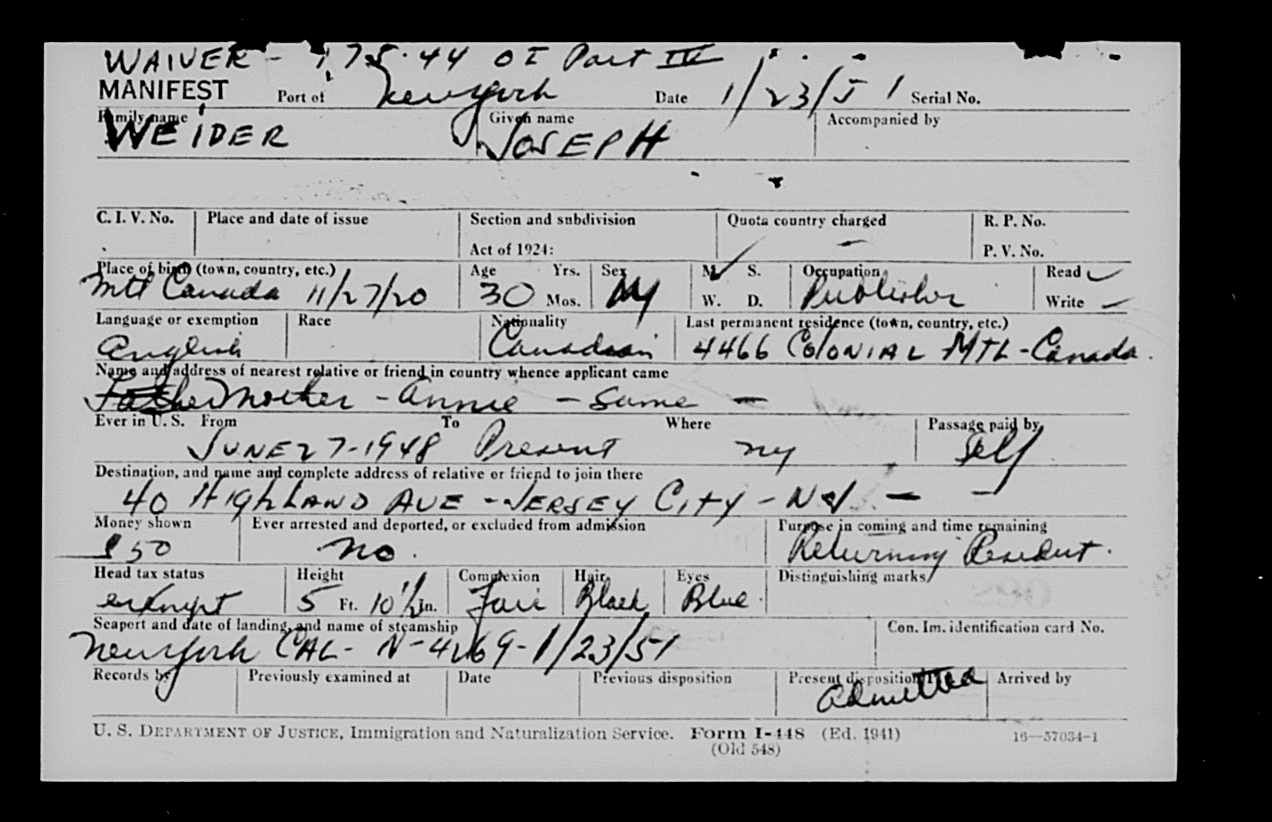 WAIVER - 175.44 OI Part IV
MANIFEST Port of New York Date 1/23/51 Serial No.
Family name Given name Accompanied by
WEIDER JOSEPH
C. I. V. No. Place and date of issue Section and subdivision Quota country charged R. P. No.
Act of 1924: P. V. No.
Place of birth (town, country, etc.) Age Yrs. Sex M. S. Occupation Read
Mtl Canada 11/27/20 30 Mos. M W. D. Publisher Write
Language or exemption Race Nationality Last permanent residence (town, country, etc.)
English Canadian 4466 COLONIAL MTL - Canada.
Name and address of nearest relative or friend in country whence applicant came
Father Mother - Annie - Same -
Ever in U. S. From To Where Passage paid by
JUNE 27-1948 Present NY Self
Destination, and name and complete address of relative or friend to join there
40 HIGHLAND AVE - JERSEY CITY - NJ. -
Money shown Ever arrested and deported, or excluded from admission Purpose in coming and time remaining
$50 No. Returning Resident.
Head tax status Height Complexion Hair Eyes Distinguishing marks
exempt 5 Ft. 10 1/2 In. Fair Black Blue.
Seaport and date of landing, and name of steamship Con. Im. identification card No.
New York CAL- N-4269-1/23/51
Records by Previously examined at Date Previous disposition Present disposition Arrived by
Admitted
U. S. DEPARTMENT OF JUSTICE, Immigration and Naturalization Service. Form I-448 (Ed. 1941) 16—57034-1
(Old 548)